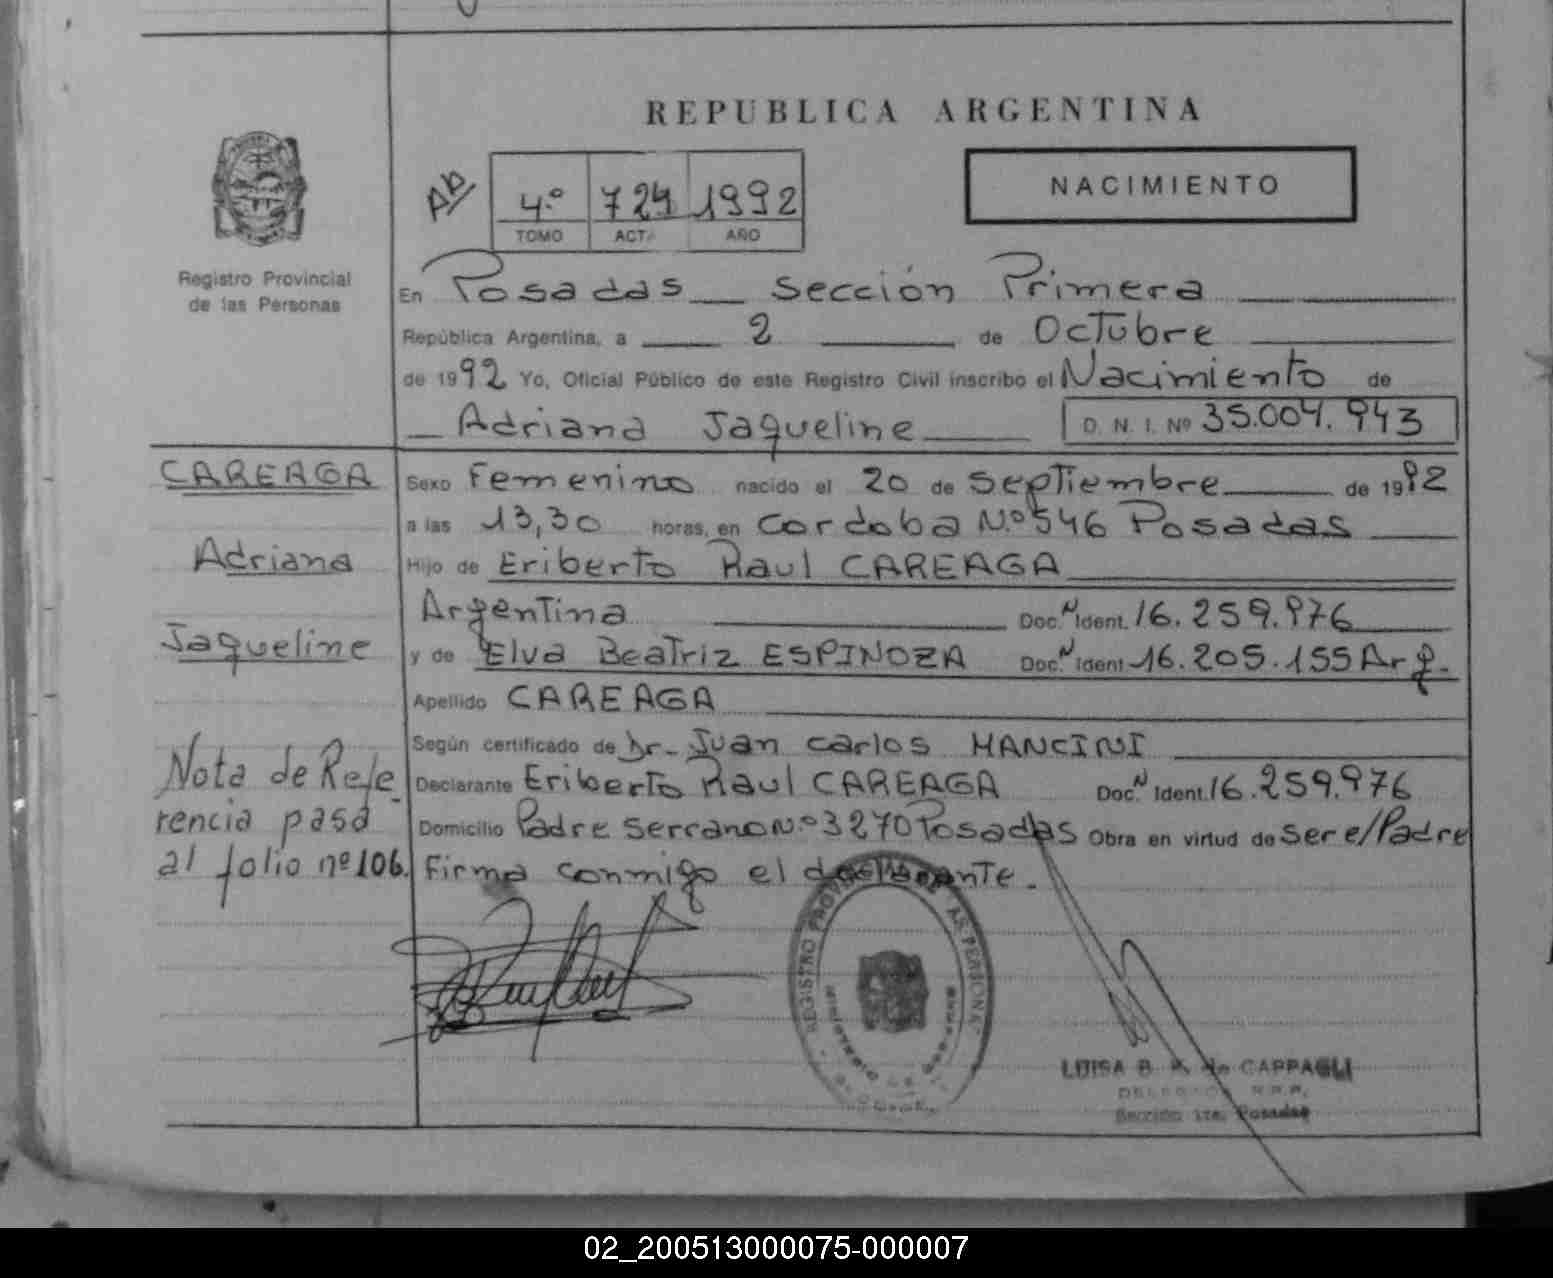 REPUBLICA ARGENTINA
NACIMIENTO
Ab
4º 724 1992
TOMO ACTA AÑO
Registro Provincial
de las Personas
En Posadas Sección Primera
República Argentina, a 2 de Octubre
de 1992 Yo, Oficial Público de este Registro Civil inscribo el Nacimiento de
Adriana Jaqueline D. N. I. Nº 35.004.943
CAREAGA
Adriana
Jaqueline
Sexo Femenino nacido el 20 de Septiembre de 1992
a las 13,30 horas, en Cordoba Nº 546 Posadas
Hijo de Eriberto Raul CAREAGA
Argentina Doc. N Ident. 16.259.976
y de Elva Beatriz ESPINOZA Doc. N Ident 16.205.155 Arg.
Apellido CAREAGA
Según certificado de Dr. Juan Carlos MANCINI
Declarante Eriberto Raul CAREAGA Doc. N Ident. 16.259.976
Domicilio Padre Serrano Nº 3270 Posadas Obra en virtud de Ser e/Padre
Firma conmigo el declarante.
Nota de Refe-
rencia pasa
al folio nº 106.
REGISTRO
LUISA B. de CAPPAGLI
Sección 1ra. Posadas
02_200513000075-000007